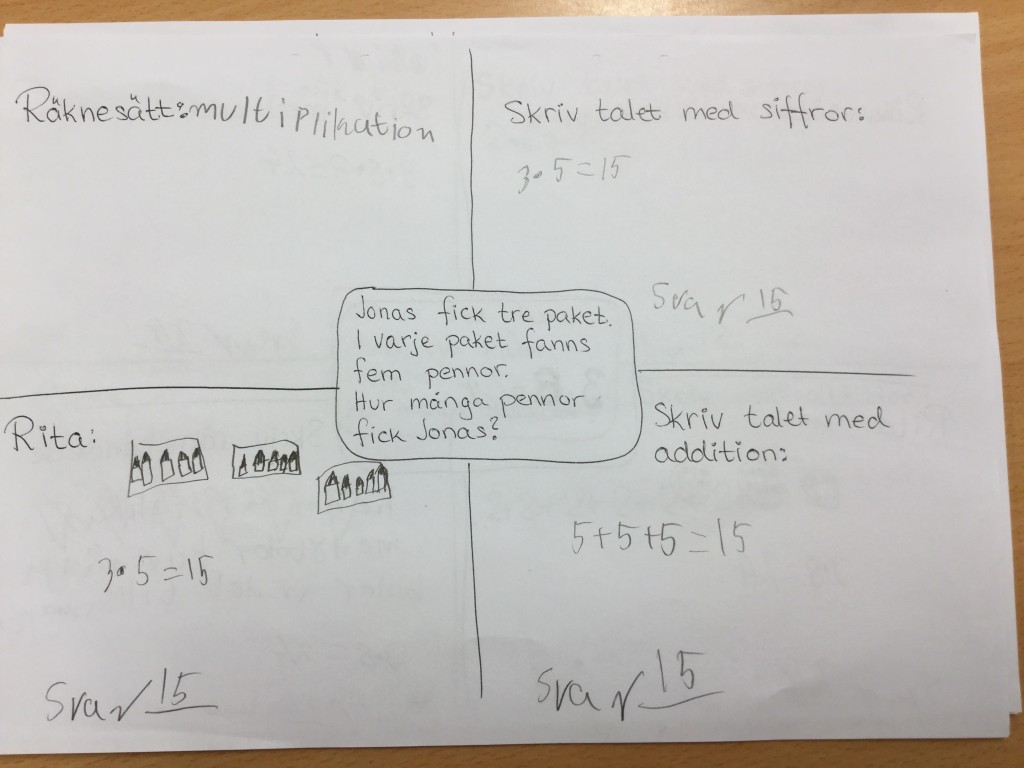 Räknesätt: multiplikation
Skriv talet med siffror:
3·5=15
Svar 15
Jonas fick tre paket.
I varje paket fanns
fem pennor.
Hur många pennor
fick Jonas?
Rita:
3·5=15
Svar 15
Skriv talet med
addition:
5+5+5=15
Svar 15